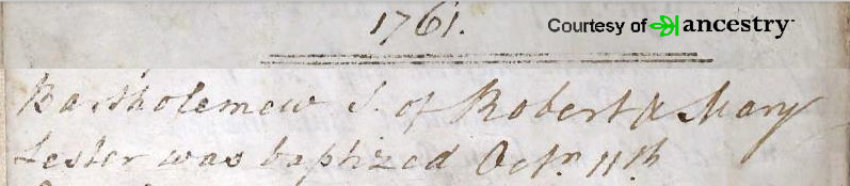 1761.
Courtesy of ancestry
Bartholemew S. of Robert & Mary
Lester was baptized Octr 11th